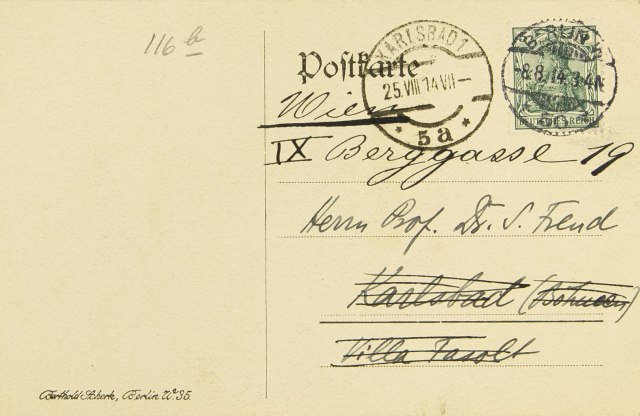 116 a
Postkarte
KARLSBAD 1
25.VIII.14 VII–
* 5a *
BERLIN
-8.8.14.3-4N
DEUTSCHES REICH
Wien
IX Berggasse 19
Herrn Prof. Dr. S. Freud
Karlsbad (Böhmen)
Villa Fasolt
Berthold Scherk, Berlin W. 35.